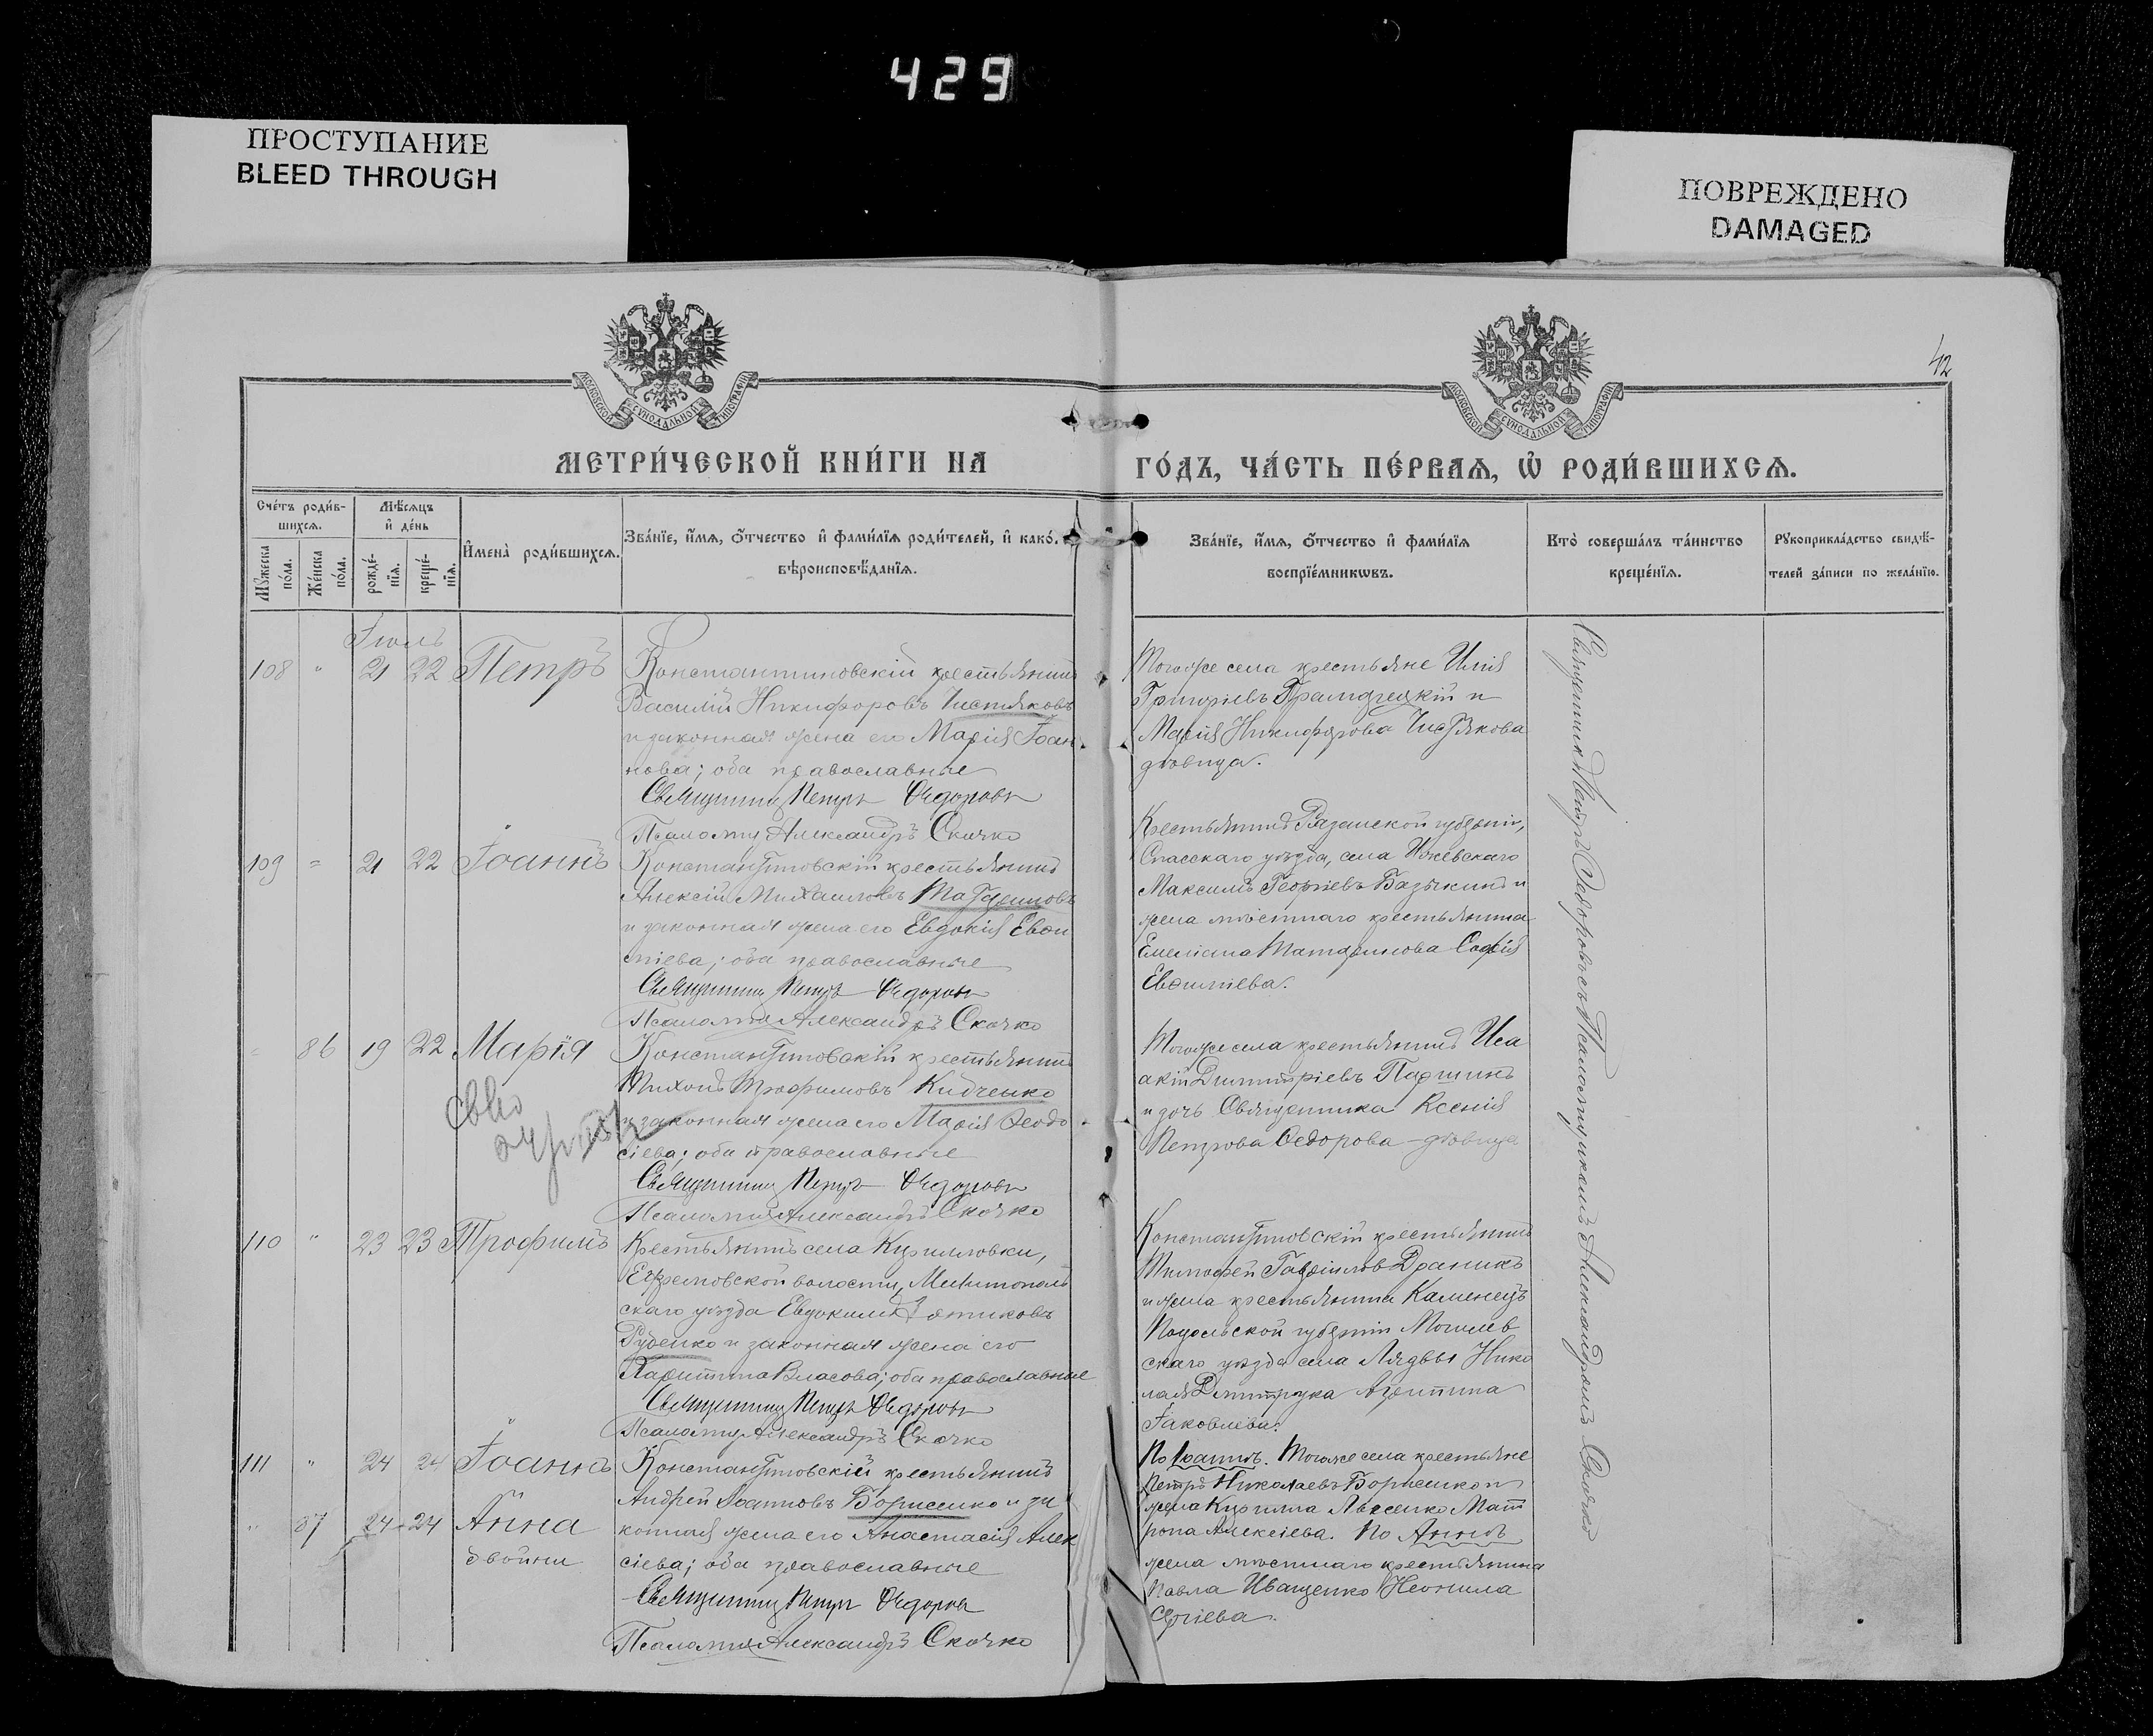 429
ПРОСТУПАНИЕ
BLEED THROUGH
ПОВРЕЖДЕНО
DAMAGED
42
МОСКОВСКОЙ СУНОДАЛЬНОЙ ТИПОГРАФІИ
МОСКОВСКОЙ СУНОДАЛЬНОЙ ТИПОГРАФІИ
МЕТРИ́ЧЕСКОЙ КНИ́ГИ НА
ГО́ДЪ, ЧА́СТЬ ПЕ́РВАѦ, Ѡ҆ РОДИ́ВШИХСѦ.
Сче́тъ роди́в-
шихсѧ.
Мꙋ́жеска по́ла.
Же́нска по́ла.
Мѣ́сѧцъ
и҆ де́нь
рожде́-
нїѧ.
креще́-
нїѧ.
И҆мена̀ роди́вшихсѧ.
Зва́нїе, и҆́мѧ, ѻ҆́тчество и҆ фами́лїѧ роди́телей, и҆ како́.
вѣроисповѣ́данїѧ.
Зва́нїе, и҆́мѧ, ѻ҆́тчество и҆ фами́лїѧ
воспрїе́мникѡвъ.
Кто̀ соверша́лъ та́инство
креще́нїѧ.
Рꙋкоприкла́дство свидѣ́-
телей за́писи по жела́нїю.
Іюль
108 " 21 22 Петръ
Константиновскій крестьянинъ
Василій Никифоровъ Чистяковъ
и законная жена его Марія Іоан
нова; оба православные
Священникъ Петръ Ѳедоровъ
Псаломщ Александръ Скочко
Тогоже села крестьяне Илія
Григоріевъ и
Марія Никифорова Чистякова
дѣвица.
109 = 21 22 Іоаннъ
Константиновскій крестьянинъ
Алексій Михаиловъ
и законная жена его Евдокія Евѳи
міева; оба православные
Священникъ Петръ Ѳедоровъ
Псаломщ Александръ Скочко
Крестьянинъ Рязанской губерніи,
Спасскаго уѣзда, села Ижевскаго
Максимъ Георгіевъ Базыкинъ и
жена мѣстнаго крестьянина
Емеліана Софія
Евѳиміева.
86 19 22 Марія
Константиновскій крестьянинъ
Тихонъ Трофимовъ Кидченко
и законная жена его Марія Ѳеодо
сіева; оба православные
Священникъ Петръ Ѳедоровъ
Псаломщ Александръ Скочко
Тогоже села крестьянинъ Иса
акій Димитріевъ Паршинъ
и дочь Священника Ксенія
Петрова Ѳедорова - дѣвица
110 " 23 23 Трофимъ
Крестьянинъ села Кирилловки,
Ефремовской волости, Мелитополь
скаго уѣзда Евдокимъ
Руденко и законная жена его
Харитина Власова; оба православные
Священникъ Петръ Ѳедоровъ
Псаломщ Александръ Скочко
Константиновскій крестьянинъ
Тимофей Гавріиловъ Драникъ
и жена крестьянина Каменецъ
Подольской губерніи Могилев
скаго уѣзда села Лядвы Нико
лая Дмитрука Агриппина
Іаковлева.
111 " 24 24 Іоаннъ
" 87 24 24 Анна
двойни
Константиновскій крестьянинъ
Андрей Іоанновъ Борисенко и за
конная жена его Анастасія Алек
сіева; оба православные
Священникъ Петръ Ѳедоровъ
Псаломщ Александръ Скочко
По Іоаннѣ. Тогоже села крестьяне
Петръ Николаевъ Борисенко и
жена Кирилла Мат
рона Алексіева. По Аннѣ
жена мѣстнаго крестьянина
Павла Иващенко Неонила
Сергіева.
Священникъ Петръ Ѳедоровъ съ Псаломщикомъ Александромъ Скочко